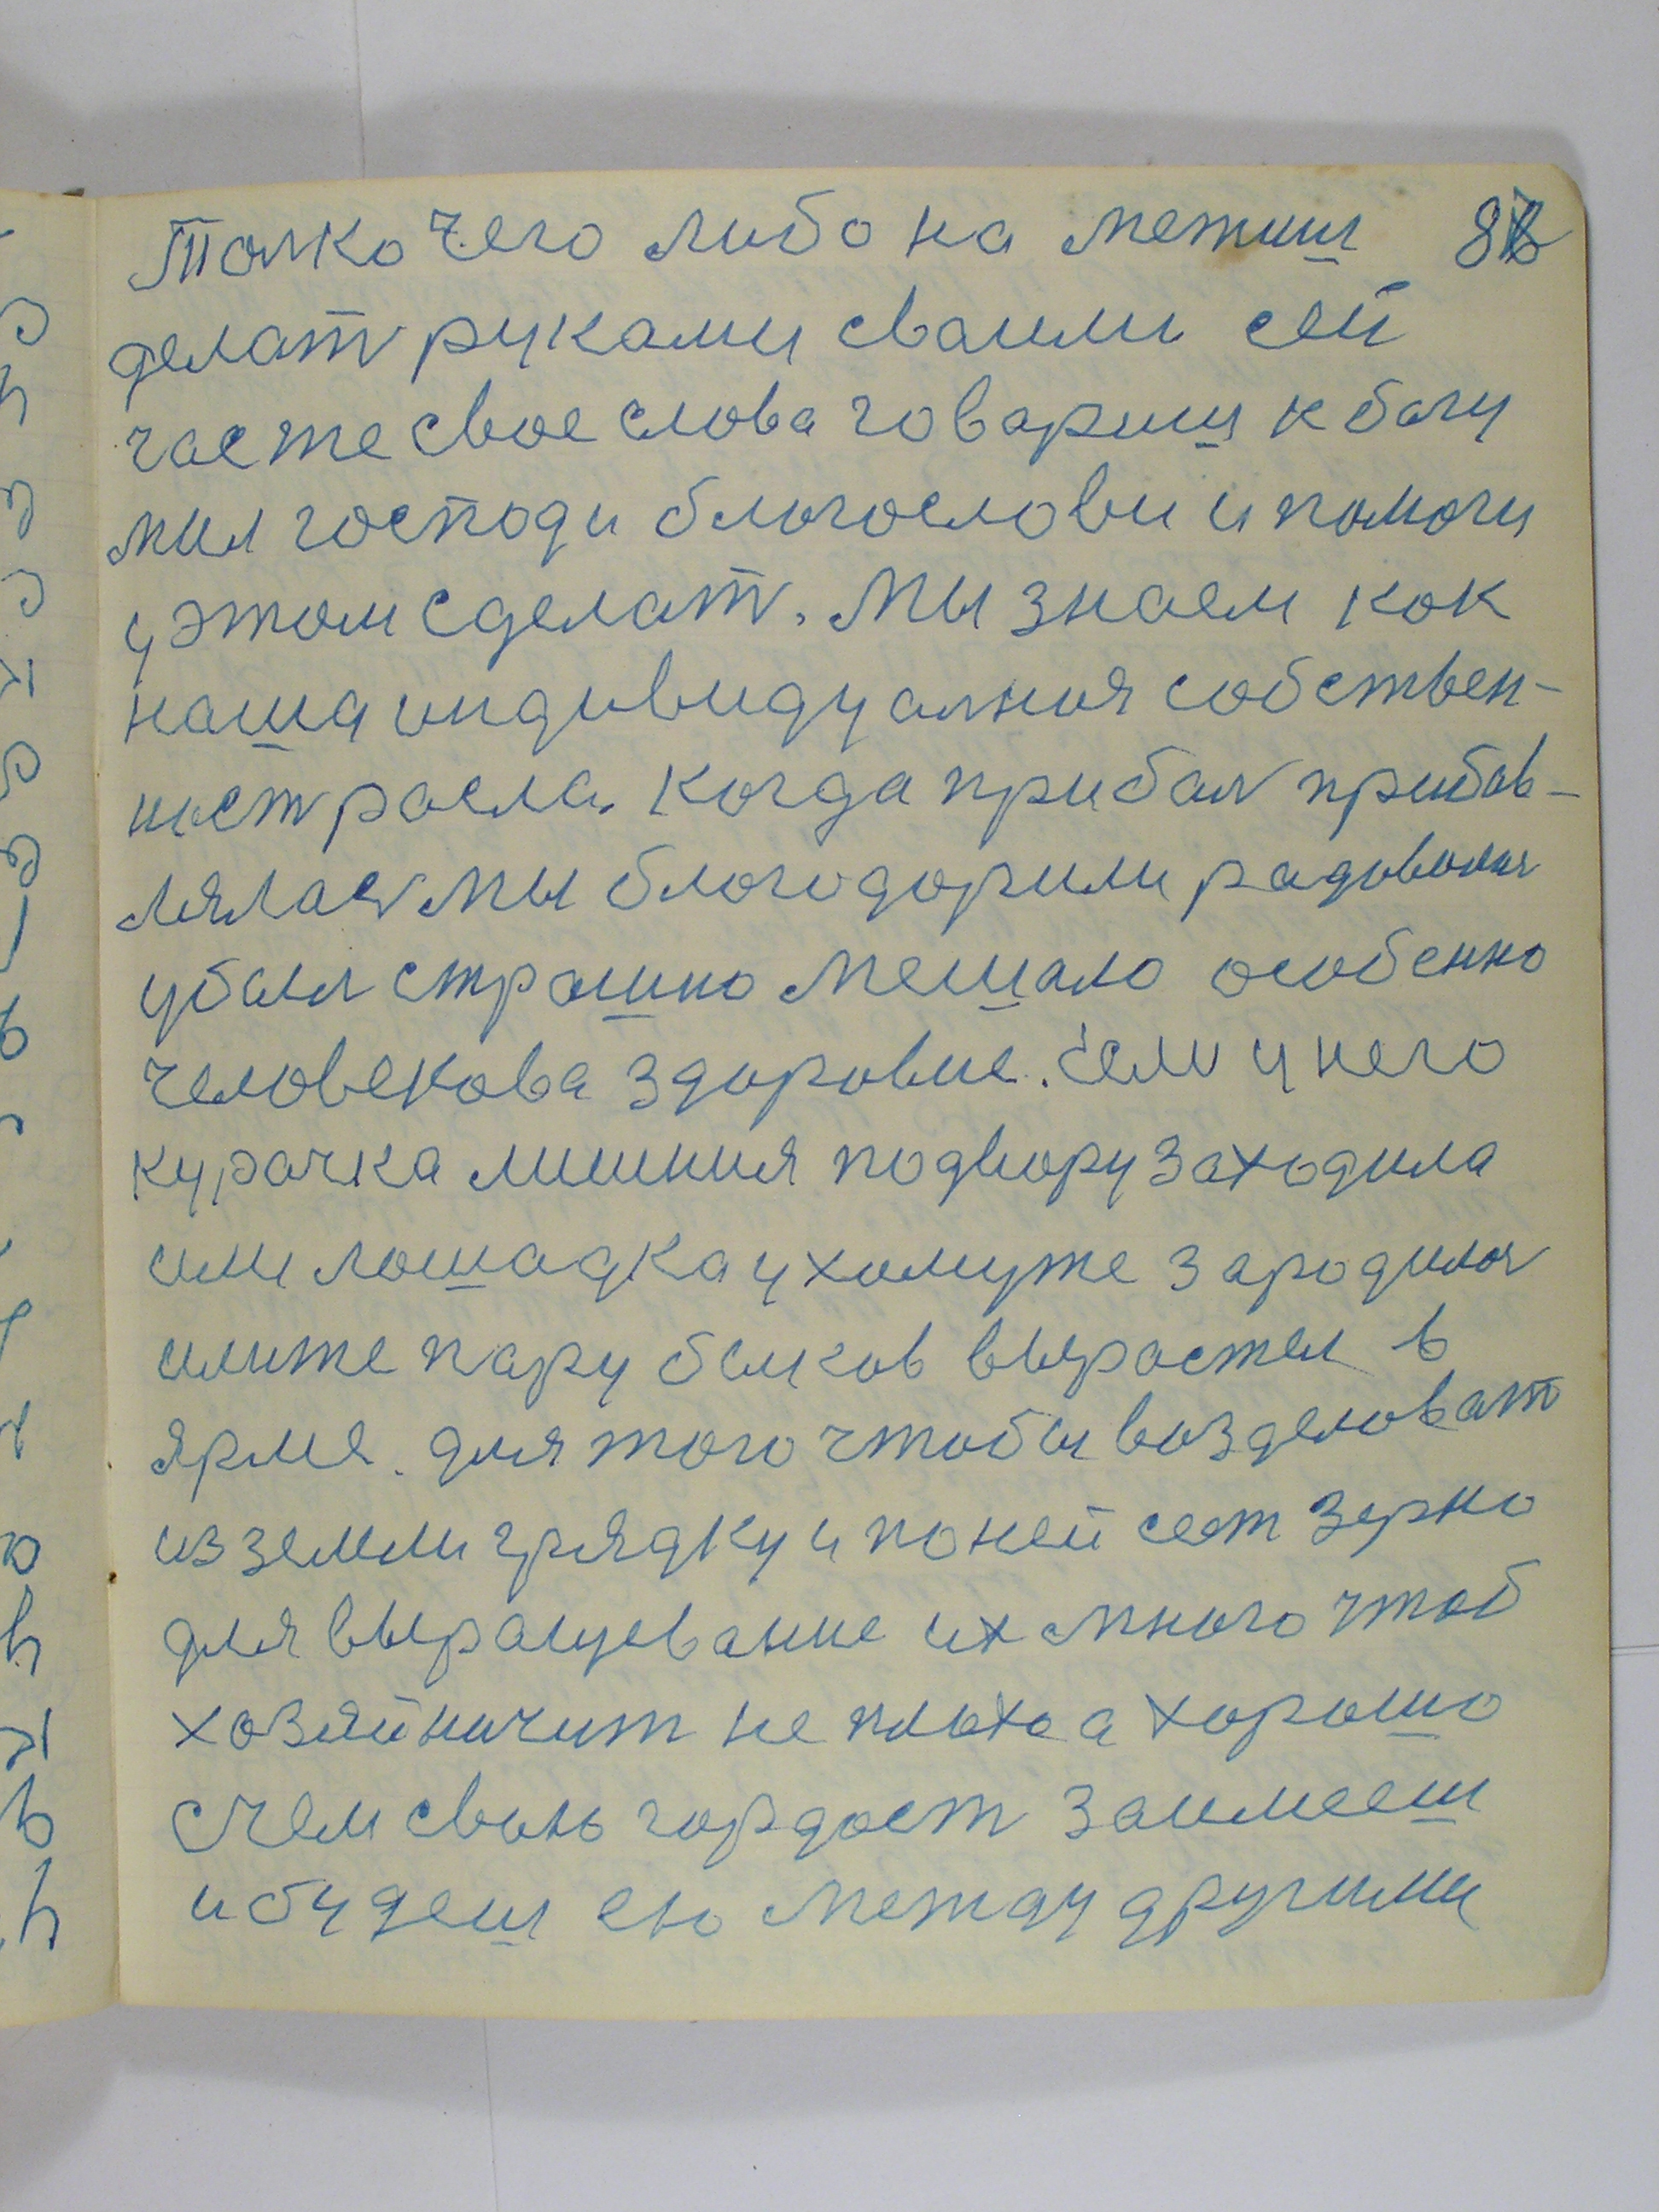 Толко чего либо на метиш 88
делат руками сваими сей
час же свое слова говариш к богу
мил господи благослови и помоги
у этом сделат. Мы знаем как
наша индивидуалния собствен-
ност расла. Когда прибал прибав-
лялас мы благодарили радовалис
убал страшно мешало особенно
человекова здоровие. Если у него
курачка лишния подвору заходила
или лошадка у хомуте зародилас
илиже пару быков вырастил в
ярме. для того чтобы возделоват
из земли грядку и по ней сеят зерно
для выращевание их много чтоб
хозяйничит не плохо а хорошо
с чем свою гордост заимееш
и будеш ею между другими